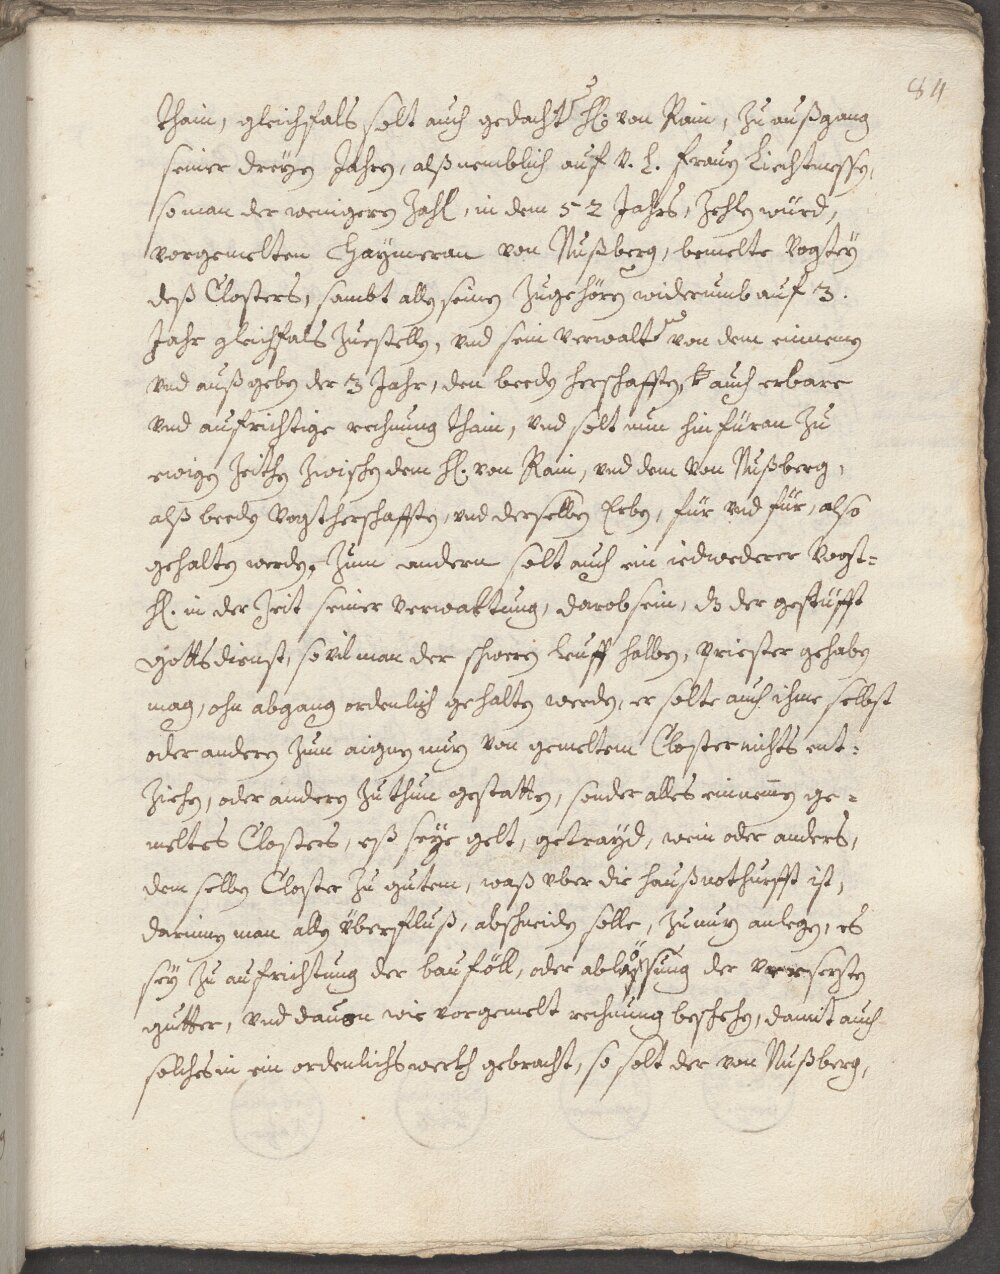 84
thain, gleichfals solt auch gedacht H: von Rain, zu außgang
seiner dreyen Jahren, alß nemblich auf V. L. Frauen Liechtmessen,
so man der wenigeren Zahl, in dem 52 Jahrs, zehlen würd,
vorgemelten Haymeran von Nußberg, bemelte Vogtey
deß Closters, sambt allen seinen zugehören widerumb auf 3.
Jahr gleichfals zuestellen, vnd sein verwalter von dem einnemen
vnd außgeben der 3 Jahr, den beeden herschafften, auch erbare
vnd aufrichtige rechnung thain, vnd solt nun hinfüran zu
ewigen Zeithen zwischen dem H. von Rain, vnd dem von Nußberg,
alß beeden Vogtherschafften, vnd derselben Erben, für vnd für, also
gehalten werden, Zum andern solt auch ein iedwederer Vogt=
H. in der Zeit seiner verwaltung, darob sein, dz der gestüfft
Gottsdienst, so vil man der schweren leuff halben, Priester gehaben
mag, ohn abgang ordenlich gehalten werden, er solte auch ihme selbst
oder anderen zum aignen nuzen von gemeltem Closter nichts ent=
ziehen, oder anderen zuthun gestatten, sonder alles einnemen ge=
meltes Closters, eß seye gelt, getrayd, wein oder anders,
dem selben Closter zu gutem, waß vber die haußnothurfft ist,
darinnen man allen überfluß, abschneiden solle, zu nuzen anlegen, es
sey zu aufrichtung der bauföll, oder ablößung der versezten
gutter, vnd dauon wie vorgemelt rechnung beschehen, damit auch
solches in ein ordenlichs werkh gebracht, so solt der von Nußberg,